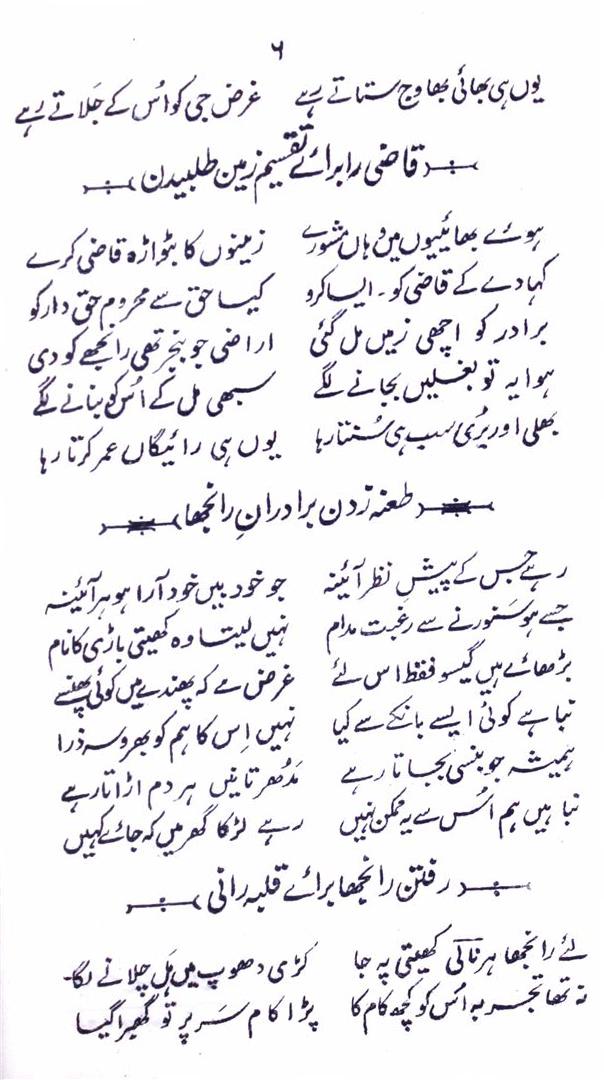 ۶
یوں ہی بھائی بھاوج ستاتے رہے غرض جی کو اُس کے جَلاتے رہے
قاضی را برائے تقسیم زمین طلبیدن
ہوئے بھائیوں میں وہاں مشورے زمینوں کا بٹوارہ قاضی کرے
کہا دے کے قاضی کو۔ ایسا کرو کیا حق سے محروم حق دار کو
برادر کو اچھی زمیں مل گئی اراضی جو بنجر تھی رانجھے کو دی
ہوا یہ تو بغلیں بجانے لگے سبھی مل کے اُس کو بنانے لگے
بھلی اور بُری سب ہی سُنتا رہا یوں ہی رائیگاں عمر کرتا رہا
طعنہ زدن برادرانِ رانجھا
رہے جس کے پیشِ نظر آئینہ جو خود بیں خود آرا ہو ہر آئینہ
جسے ہو سَنورنے سے رغبت مدام نہیں لیتا وہ کھیتی باڑی کا نام
بڑھائے ہیں گیسو فقط اس لئے غرض ہے کہ پھندے میں کوئی پھنسے
نبا ہے کوئی ایسے بانکے سے کیا نہیں اِس کا ہم کو بھروسہ ذرا
ہمیشہ جو بنسی بجاتا رہے مَدُھر تانیں ہر دم اڑاتا رہے
نباہیں ہم اُس سے یہ ممکن نہیں رہے لڑکا گھر میں کہ جائے کہیں
رفتن رانجھا برائے قلبہ رانی
لئے رانجھا ہرنالی کھیتی پہ جا کڑی دھوپ میں ہَل چلانے لگا
نہ تھا تجربہ اُس کو کچھ کام کا پڑا کام سَر پر تو گھبرا گیا